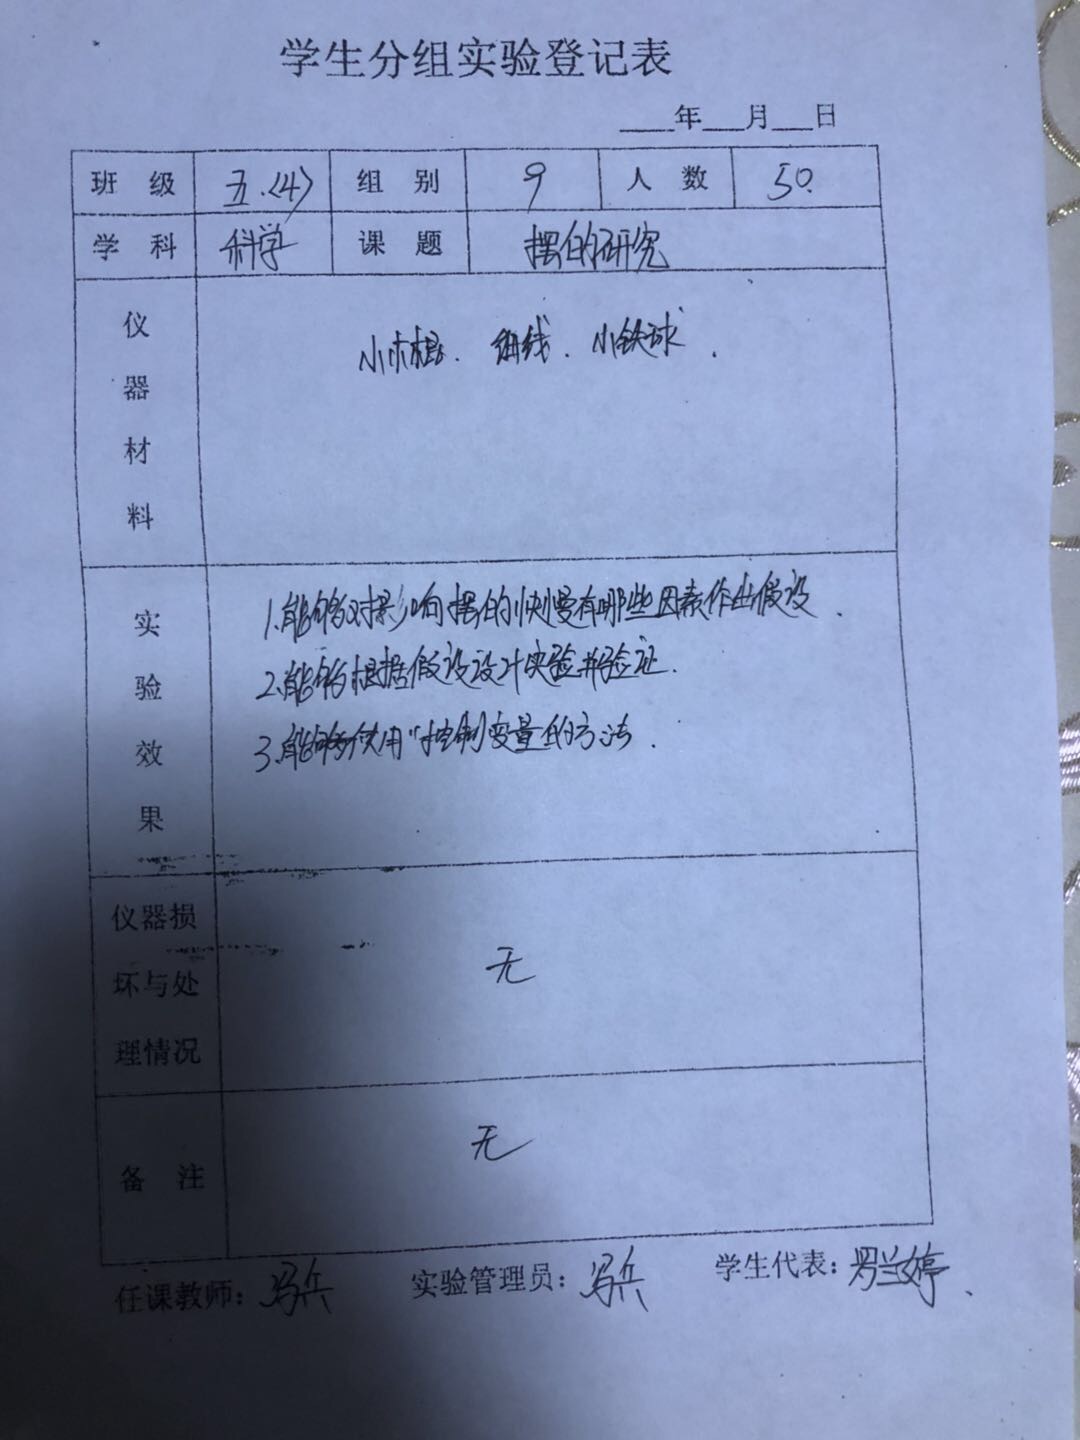 学生分组实验登记表
____年___月___日
班 级 五.(4) 组 别 9 人 数 50.
学 科 科学 课 题 摆的研究
仪器材料 小木棍. 细线. 小铁球.
实验效果 1.能够对影响摆的快慢有哪些因素作出假设.
2.能够根据假设设计实验并验证.
3.能够使用“控制变量的方法.
仪器损
坏与处 无
理情况
备 注 无
任课教师:冯兵 实验管理员:冯兵 学生代表:罗兰婷.